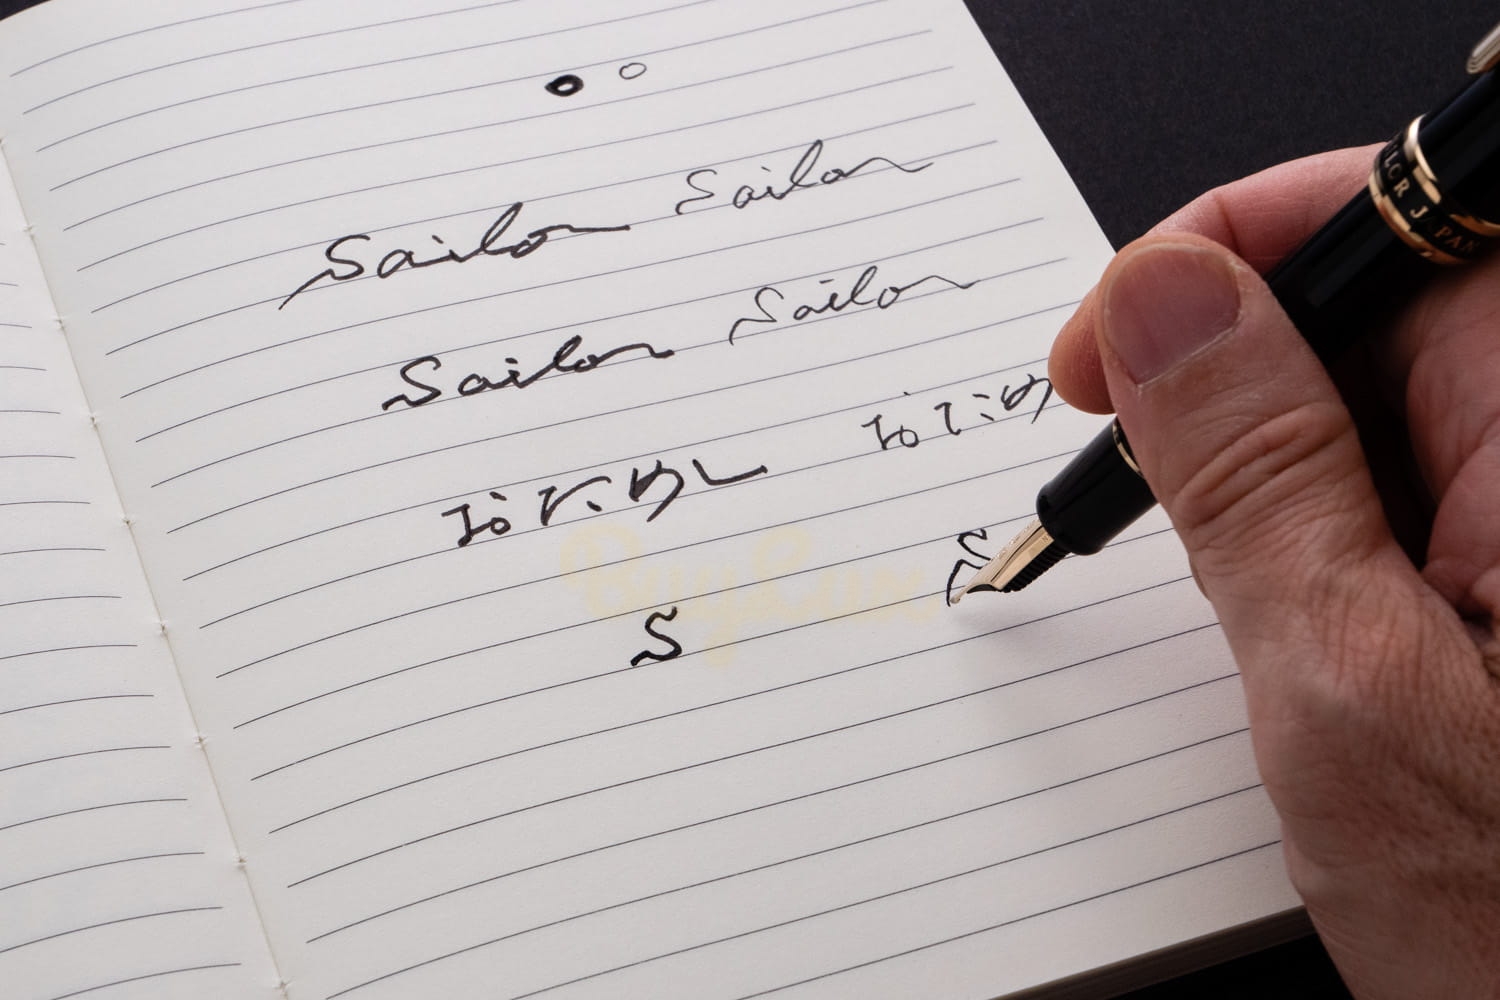 Sailor Sailor
Sailor Sailor
おためし おため
S S
BuyLux
SAILOR JAPAN